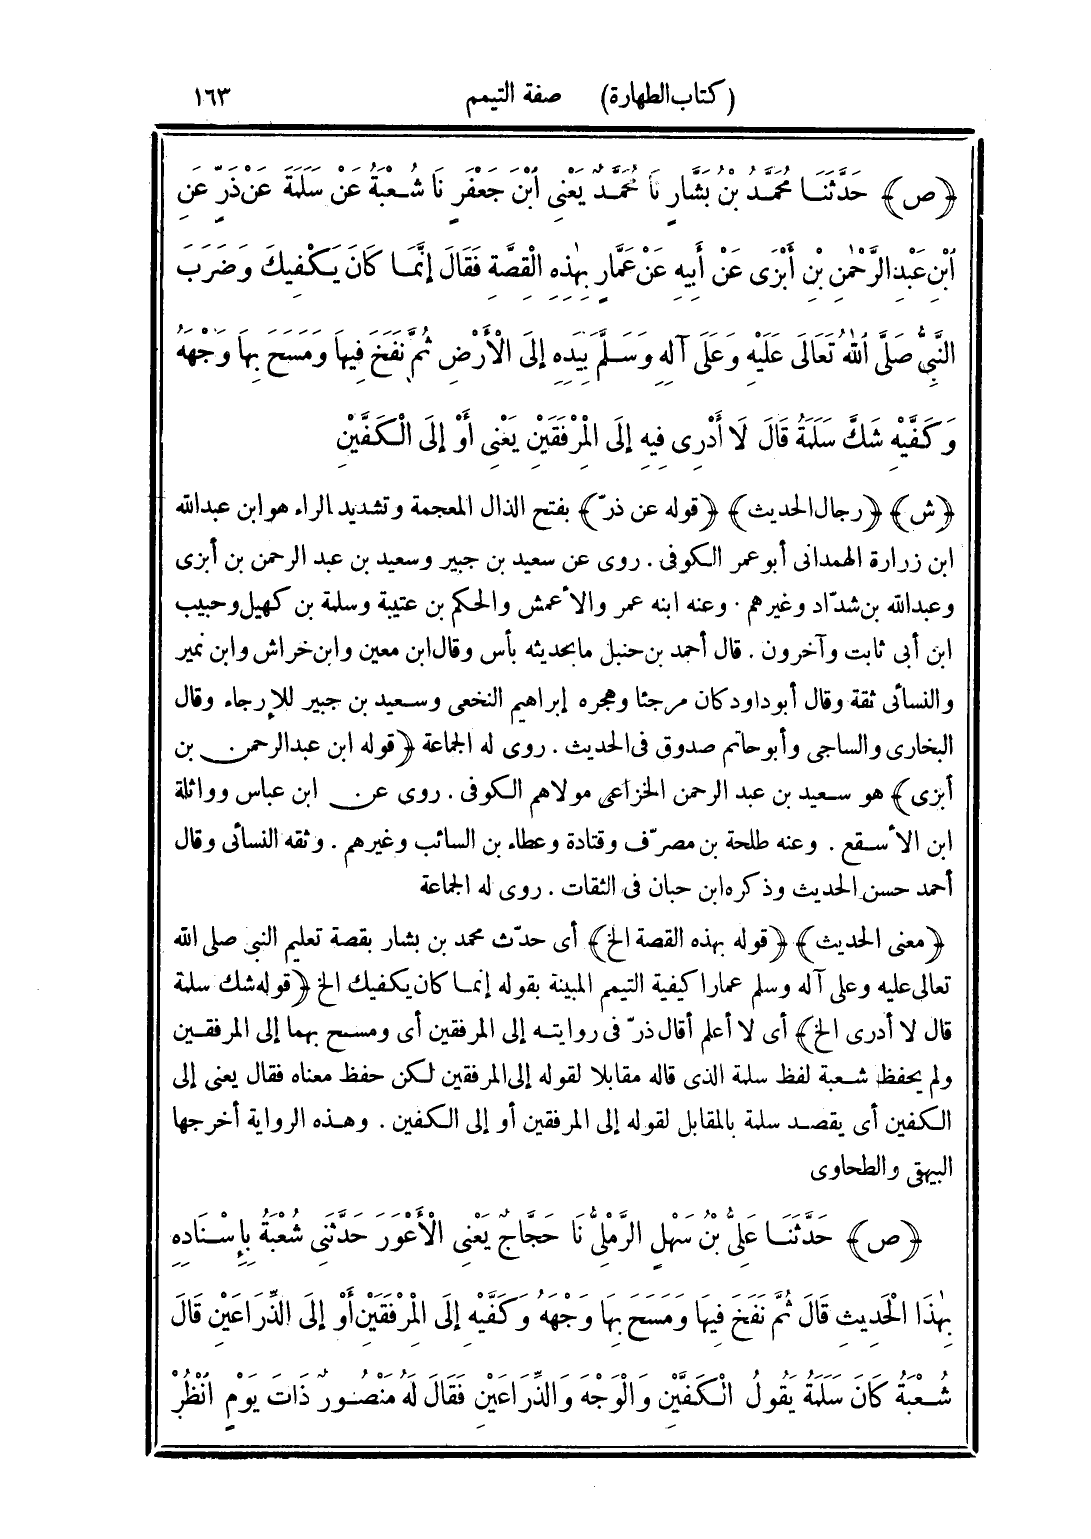 (كتاب الطهارة) صفة التيمم ١٦٣
﴿ص﴾ حَدَّثَنَا مُحَمَّدُ بْنُ بَشَّارٍ نَا مُحَمَّدٌ يَعْنِى ابْنَ جَعْفَرٍ نَا شُعْبَةُ عَنْ سَلَمَةَ عَنْ ذَرٍّ عَنِ
ابْنِ عَبْدِ الرَّحْمٰنِ بْنِ أَبْزَى عَنْ أَبِيهِ عَنْ عَمَّارٍ بِهٰذِهِ الْقِصَّةِ فَقَالَ إِنَّمَا كَانَ يَكْفِيكَ وَضَرَبَ
النَّبِىُّ صَلَّى اللهُ تَعَالَى عَلَيْهِ وَعَلَى آلِهِ وَسَلَّمَ بِيَدِهِ إِلَى الْأَرْضِ ثُمَّ نَفَخَ فِيهَا وَمَسَحَ بِهَا وَجْهَهُ
وَكَفَّيْهِ شَكَّ سَلَمَةُ قَالَ لَا أَدْرِى فِيهِ إِلَى الْمِرْفَقَيْنِ يَعْنِى أَوْ إِلَى الْكَفَّيْنِ
﴿ش﴾ ﴿رجال الحديث﴾ ﴿قوله عن ذرّ﴾ بفتح الذال المعجمة وتشديد الراء هو ابن عبدالله
ابن زرارة الهمدانى أبو عمر الكوفى . روى عن سعيد بن جبير وسعيد بن عبد الرحمن بن أبزى
وعبدالله بن شدّاد وغيرهم . وعنه ابنه عمر والأعمش والحكم بن عتيبة وسلمة بن كهيل وحبيب
ابن أبى ثابت وآخرون . قال أحمد بن حنبل ما بحديثه بأس وقال ابن معين وابن خراش وابن نمير
والنسائى ثقة وقال أبو داود كان مرجئا وهجره إبراهيم النخعى وسعيد بن جبير للإرجاء وقال
البخارى والساجى وأبو حاتم صدوق فى الحديث . روى له الجماعة ﴿قوله ابن عبدالرحمن بن
أبزى﴾ هو سعيد بن عبد الرحمن الخزاعى مولاهم الكوفى . روى عن ابن عباس وواثلة
ابن الأسقع . وعنه طلحة بن مصرّف وقتادة وعطاء بن السائب وغيرهم . وثقه النسائى وقال
أحمد حسن الحديث وذكره ابن حبان فى الثقات . روى له الجماعة
﴿معنى الحديث﴾ ﴿قوله بهذه القصة الخ﴾ أى حدّث محمد بن بشار بقصة تعليم النبى صلى الله
تعالى عليه وعلى آله وسلم عمارا كيفية التيمم المبينة بقوله إنما كان يكفيك الخ ﴿قوله شك سلمة
قال لا أدرى الخ﴾ أى لا أعلم أقال ذرّ فى روايته إلى المرفقين أى ومسح بهما إلى المرفقين
ولم يحفظ شعبة لفظ سلمة الذى قاله مقابلا لقوله إلى المرفقين لكن حفظ معناه فقال يعنى إلى
الكفين أى يقصد سلمة بالمقابل لقوله إلى المرفقين أو إلى الكفين . وهذه الرواية أخرجها
البيهقى والطحاوى
﴿ص﴾ حَدَّثَنَا عَلِىُّ بْنُ سَهْلٍ الرَّمْلِىُّ نَا حَجَّاجٌ يَعْنِى الْأَعْوَرَ حَدَّثَنِى شُعْبَةُ بِإِسْنَادِهِ
بِهٰذَا الْحَدِيثِ قَالَ ثُمَّ نَفَخَ فِيهَا وَمَسَحَ بِهَا وَجْهَهُ وَكَفَّيْهِ إِلَى الْمِرْفَقَيْنِ أَوْ إِلَى الذِّرَاعَيْنِ قَالَ
شُعْبَةُ كَانَ سَلَمَةُ يَقُولُ الْكَفَّيْنِ وَالْوَجْهَ وَالذِّرَاعَيْنِ فَقَالَ لَهُ مَنْصُورٌ ذَاتَ يَوْمٍ انْظُرْ